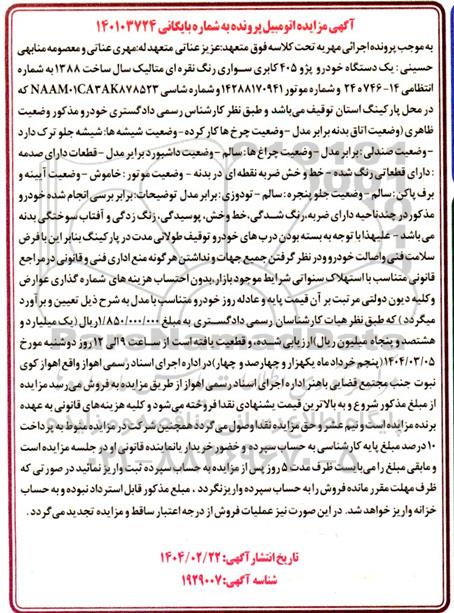 آگهی مزایده اتومبیل پرونده به شماره بایگانی ۱۴۰۱۰۳۷۲۴
به موجب پرونده اجرائی مهریه تحت کلاسه فوق متعهد: عزیز عنانی متعهدله: مهری عنانی و معصومه منابهی
حسینی : یک دستگاه خودرو پژو ۴۰۵ کابری سواری رنگ نقره ای متالیک سال ساخت ۱۳۸۸ به شماره
انتظامی ۱۴-۷۴۶ ه ۲۴ و شماره موتور ۱۲۴۸۸۱۷۰۹۴۱ و شماره شاسی NAAM۰۱CA۳AK۸۷۸۵۲۳ که
در محل پارکینگ استان توقیف می‌باشد و طبق نظر کارشناس رسمی دادگستری خودرو مذکور وضعیت
ظاهری (وضعیت اتاق بدنه برابر مدل -وضعیت چرخ ها کار کرده - وضعیت شیشه ها: شیشه جلو ترک دارد
- وضعیت صندلی : برابر مدل - وضعیت چراغ ها : سالم - وضعیت داشبورد برابر مدل - قطعات دارای صدمه
: دارای قطعاتی رنگ شده - خط و خش ضربه نقطه ای در بدنه - وضعیت موتور : خاموش - وضعیت آیینه و
برف پاکن: سالم - وضعیت جلو پنجره : سالم - تودوزی : برابر مدل توضیحات: برابر بررسی انجام شده خودرو
مذکور در چند ناحیه دارای ضربه، رنگ شـدگی، خط وخش، پوسیدگی، زنگ زدگی و آفتاب سوختگی بدنه
می باشد - علیهذا با توجه به بسته بودن درب های خودرو توقیف طولانی مدت در پارکینگ بنابر این با فرض
سلامت فنی واصالت خودرو و در نظر گرفتن جمیع جهات ونداشتن هرگونه منع اداری فنی و قانونی در مراجع
قانونی متناسب با استهلاک سنواتی شرایط موجود بازار، بدون احتساب هزینه های شماره گذاری عوارض
و کلیه دیون دولتی مرتبت بر آن قیمت پایه و عادله روز خودرو متناسب با مدل به شرح ذیل تعیین و برآورد
میگردد) که طبق نظر هیات کارشناسان رسمی دادگستری به مبلغ ۱/۸۵۰/۰۰۰/۰۰۰ریال (یک میلیارد و
هشتصد و پنجاه میلیون ریال) ارزیابی شده و قطعیت یافته است از ساعت ۹ الی ۱۲ روز دوشنبه مورخ
۱۴۰۴/۰۳/۰۵(پنجم خرداد ماه یکهزار و چهارصد و چهار) در اداره اجرای اسناد رسمی اهواز واقع اهواز کوی
نبوت جنب مجتمع قضایی باهنر اداره اجرای اسناد رسمی اهواز از طریق مزایده به فروش می رسد مزایده
از مبلغ مذکور شروع و به بالاترین قیمت پیشنهادی نقدا فروخته می شود و کلیه هزینه های قانونی به عهده
برنده مزایده است و نیم عشر و حق مزایده نقدا وصول می گردد همچنین شرکت در مزایده منوط به پرداخت
۱۰ درصد مبلغ پایه کارشناسی به حساب سپرده و حضور خریدار یا نماینده قانونی او در جلسه مزایده است
و مابقی مبلغ را می بایست ظرف مدت ۵ روز پس از مزایده به حساب سپرده ثبت واریز نمائید در صورتی که
ظرف مهلت مقرر مانده فروش را به حساب سپرده واریز نگردد ، مبلغ مذکور قابل استرداد نبوده و به حساب
خزانه واریز خواهد شد. در این صورت نیز عملیات فروش از درجه اعتبار ساقط و مزایده تجدید می گردد .
تاریخ انتشار آگهی: ۱۴۰۴/۰۲/۲۲
شناسه آگهی: ۱۹۲۹۰۰۷